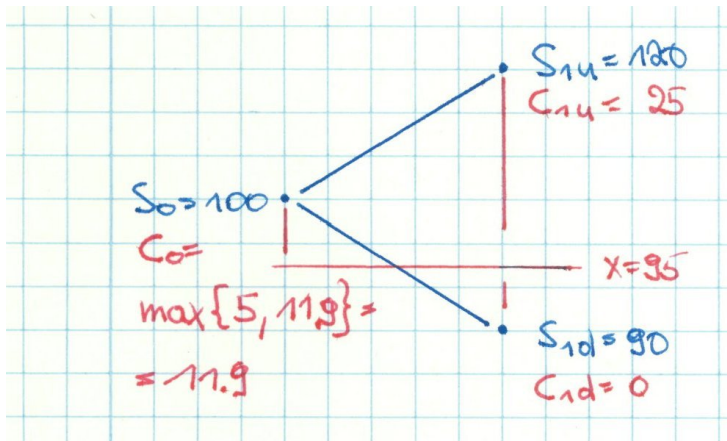 S1u = 120
C1u = 25
S0 = 100
C0 =
x = 95
max{5, 11,9} =
= 11.9
S1d = 90
C1d = 0